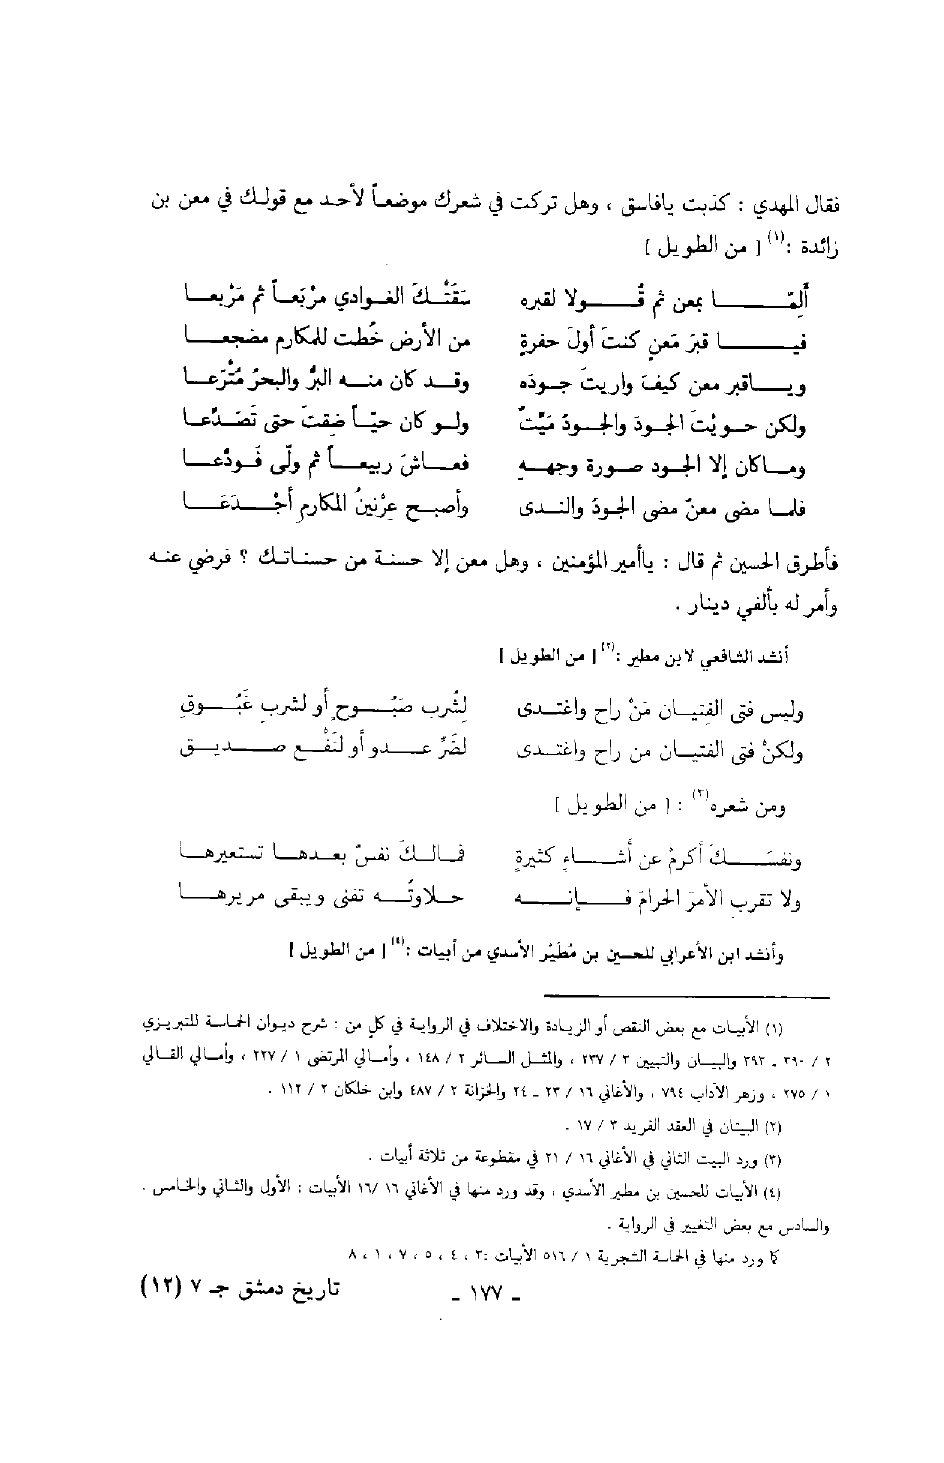 فقال المهدي : كذبت يافاسق ، وهل تركت في شعرك موضعاً لأحد مع قولك في معن بن
زائدة :(١) [ من الطويل ]
ألِمّا بمعن ثم قُولا لقبره سَقَتْكَ الغوادي مرْبَعاً ثم مَرْبعا
فيا قبرَ مَعنٍ كنتَ أولَ حفرةٍ من الأرض خُطت للمكارم مضجعا
وياقبر معن كيفَ واريتَ جودَه وقد كان منه البرُّ والبحرُ مُتْرَعا
ولكن حويْتَ الجودَ والجودُ مَيّتٌ ولو كان حيّاً ضقتَ حتى تَصَدَّعا
وماكان إلا الجود صورة وجههِ فعاشَ ربيعاً ثم ولّى فَودَّعا
فلما مضى معنٌ مضى الجودُ والندى وأصبح عِرْنينُ المكارمِ أجْدَعَا
فأطرق الحسين ثم قال : ياأمير المؤمنين ، وهل معن إلا حسنة من حسناتك ؟ فرضي عنه
وأمر له بألفي دينار .
أنشد الشافعي لابن مطير :(٢) [ من الطويل ]
وليس فتى الفتيان مَنْ راح واغتدى لشُرب صَبُوحٍ أو لشرب غَبُوقِ
ولكنْ فتى الفتيان من راح واغتدى لضَرِّ عدو أو لنَفْع صديق
ومن شعره(٣) : [ من الطويل ]
ونفسَكَ أكرمْ عن أشياءٍ كثيرةٍ فمالكَ نفسٌ بعدها تستعيرها
ولا تقرب الأمرَ الحرامَ فإنه حلاوتُه تفنى ويبقى مريرها
وأنشد ابن الأعرابي للحسين بن مُطَيْر الأسدي من أبيات :(٤) [ من الطويل ]
(١) الأبيات مع بعض النقص أو الزيادة والاختلاف في الرواية في كل من : شرح ديوان الحماسة للتبريزي
٢ / ٣٩٠ - ٣٩٢ والبيان والتبيين ٣ / ٢٣٧ ، والمثل السائر ٢ / ١٤٨ ، وأمالي المرتضى ١ / ٢٢٧ ، وأمالي القالي
١ / ٢٧٥ ، وزهر الآداب ٧٩٤ ، والأغاني ١٦ / ٢٣ - ٢٤ والخزانة ٢ / ٤٨٧ وابن خلكان ٢ / ١١٢ .
(٢) البيتان في العقد الفريد ٣ / ١٧ .
(٣) ورد البيت الثاني في الأغاني ١٦ / ٢١ في مقطوعة من ثلاثة أبيات .
(٤) الأبيات للحسين بن مطير الأسدي ، وقد ورد منها في الأغاني ١٦ /١٦ الأبيات : الأول والثاني والخامس .
والسادس مع بعض التغيير في الرواية .
كما ورد منها في الحماسة الشجرية ١ / ٥١٦ الأبيات :٢ ، ٤ ، ٥ ، ٧ ، ١ ، ٨
- ١٧٧ - تاريخ دمشق جـ ٧ (١٢)